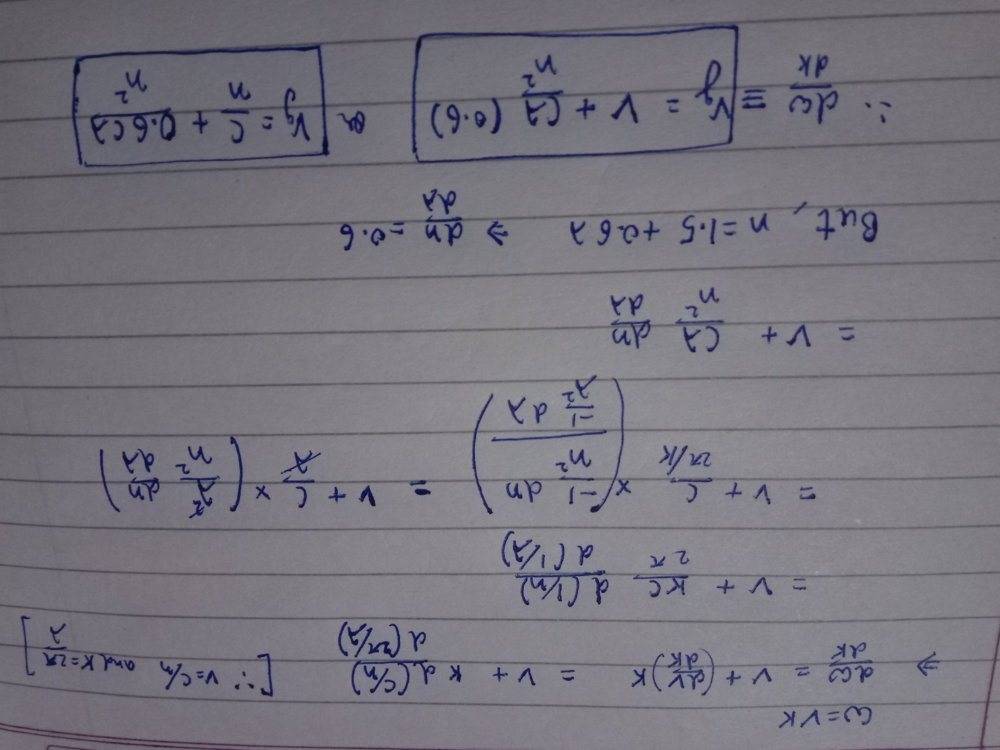 ω = vk
⇒ dω/dk = v + (dv/dk)k = v + k d(c/n)/d(2π/λ) [∵ v = c/n and k = 2π/λ]
= v + kc/2π d(1/n)/d(1/λ)
= v + c/(2π/k) × (-1/n² dn / -1/λ² dλ) = v + c/λ × (λ²/n² dn/dλ)
= v + cλ/n² dn/dλ
But, n = 1.5 + 0.6λ ⇒ dn/dλ = 0.6
∴ dω/dk ≡ Vg = v + cλ/n² (0.6) or Vg = c/n + 0.6cλ/n²